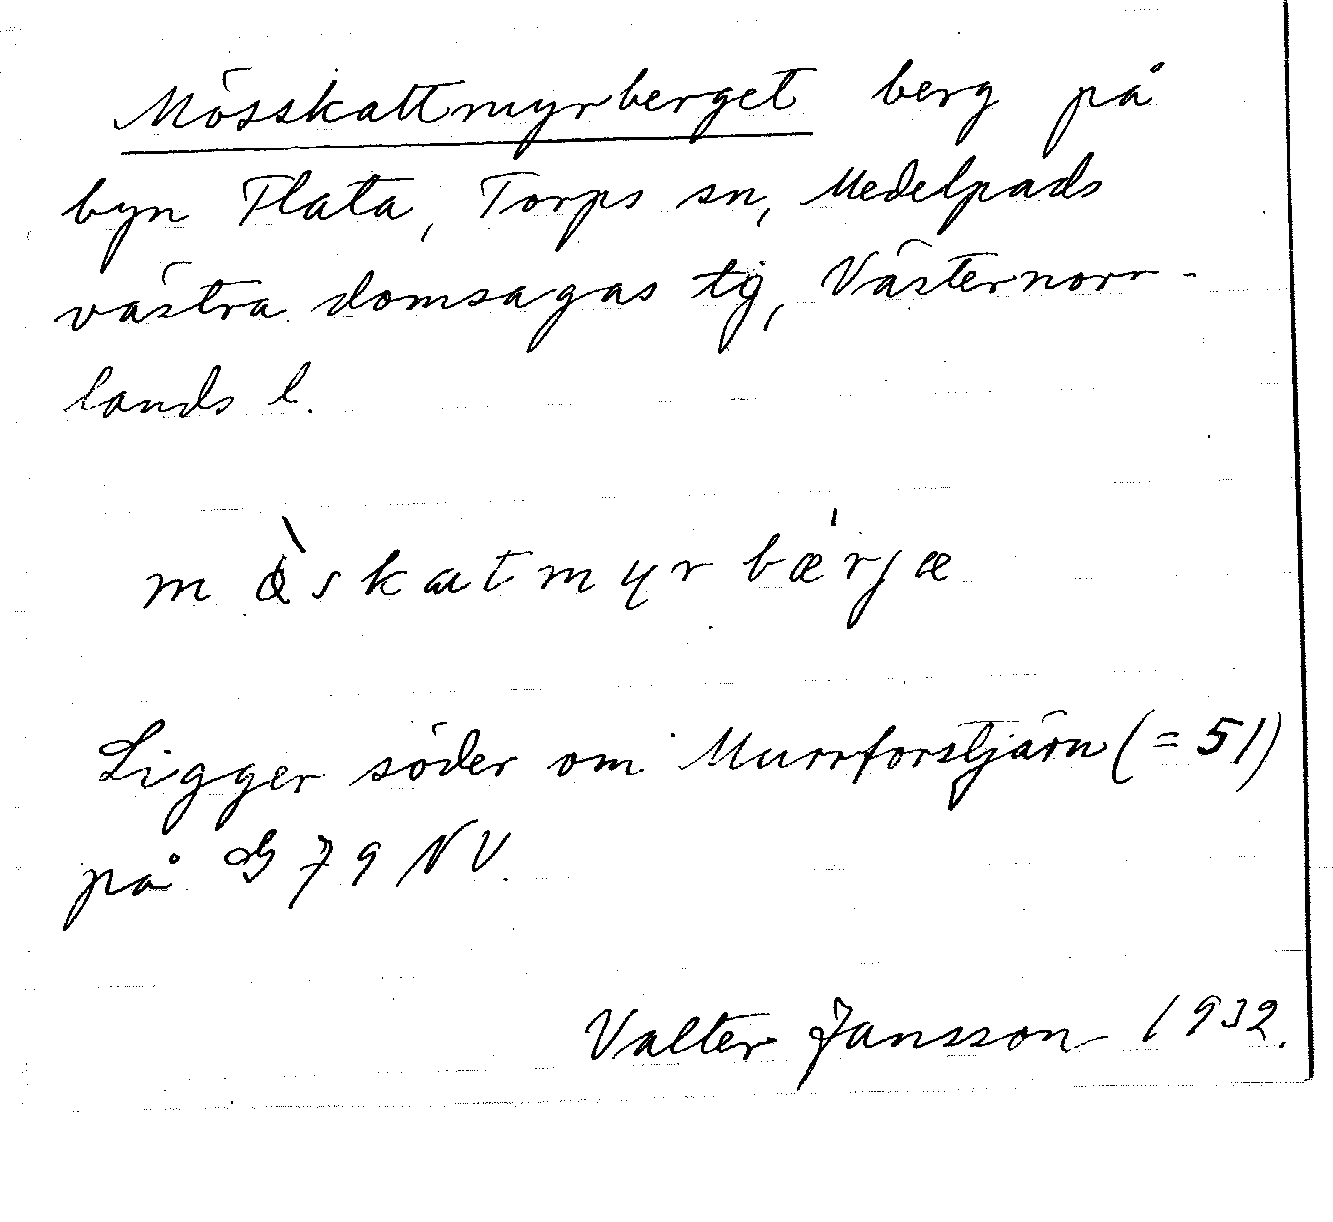 Mösskattmyrberget berg på
byn Flata, Torps sn, Medelpads
västra domsagas tg, Västernorr-
lands l.
mø̀skatmyrbǽrjæ
Ligger söder om Murrforstjärn (= 51)
på G 79 NV.
Valter Jansson 1932.